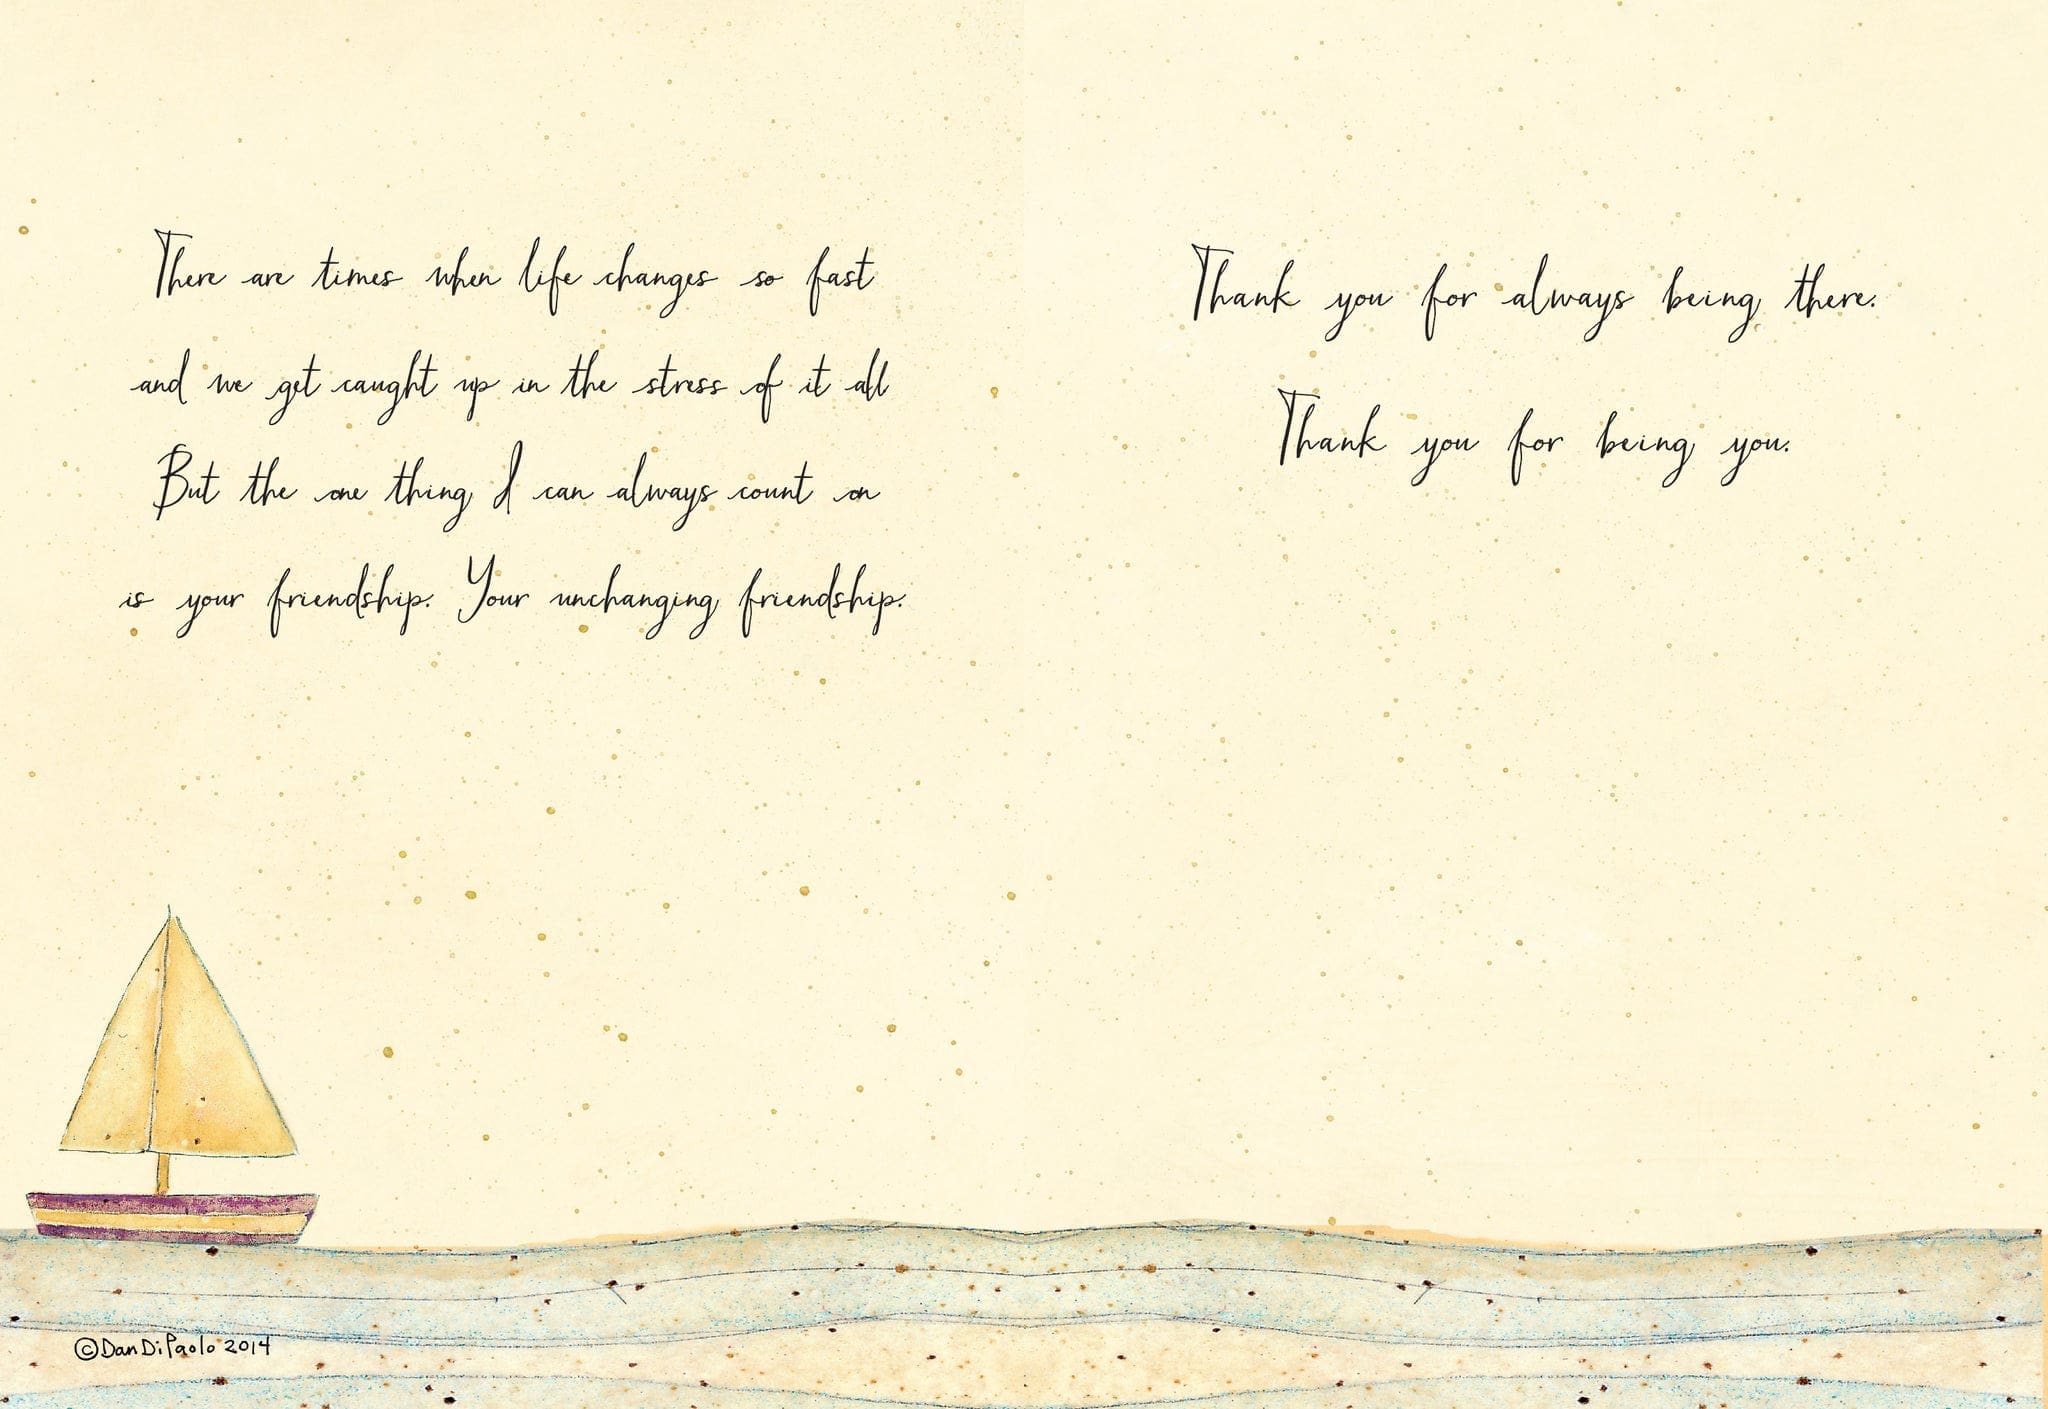 There are times when life changes so fast
and we get caught up in the stress of it all
But the one thing I can always count on
is your friendship. Your unchanging friendship.
Thank you for always being there.
Thank you for being you.
©Dan DiPaolo 2014